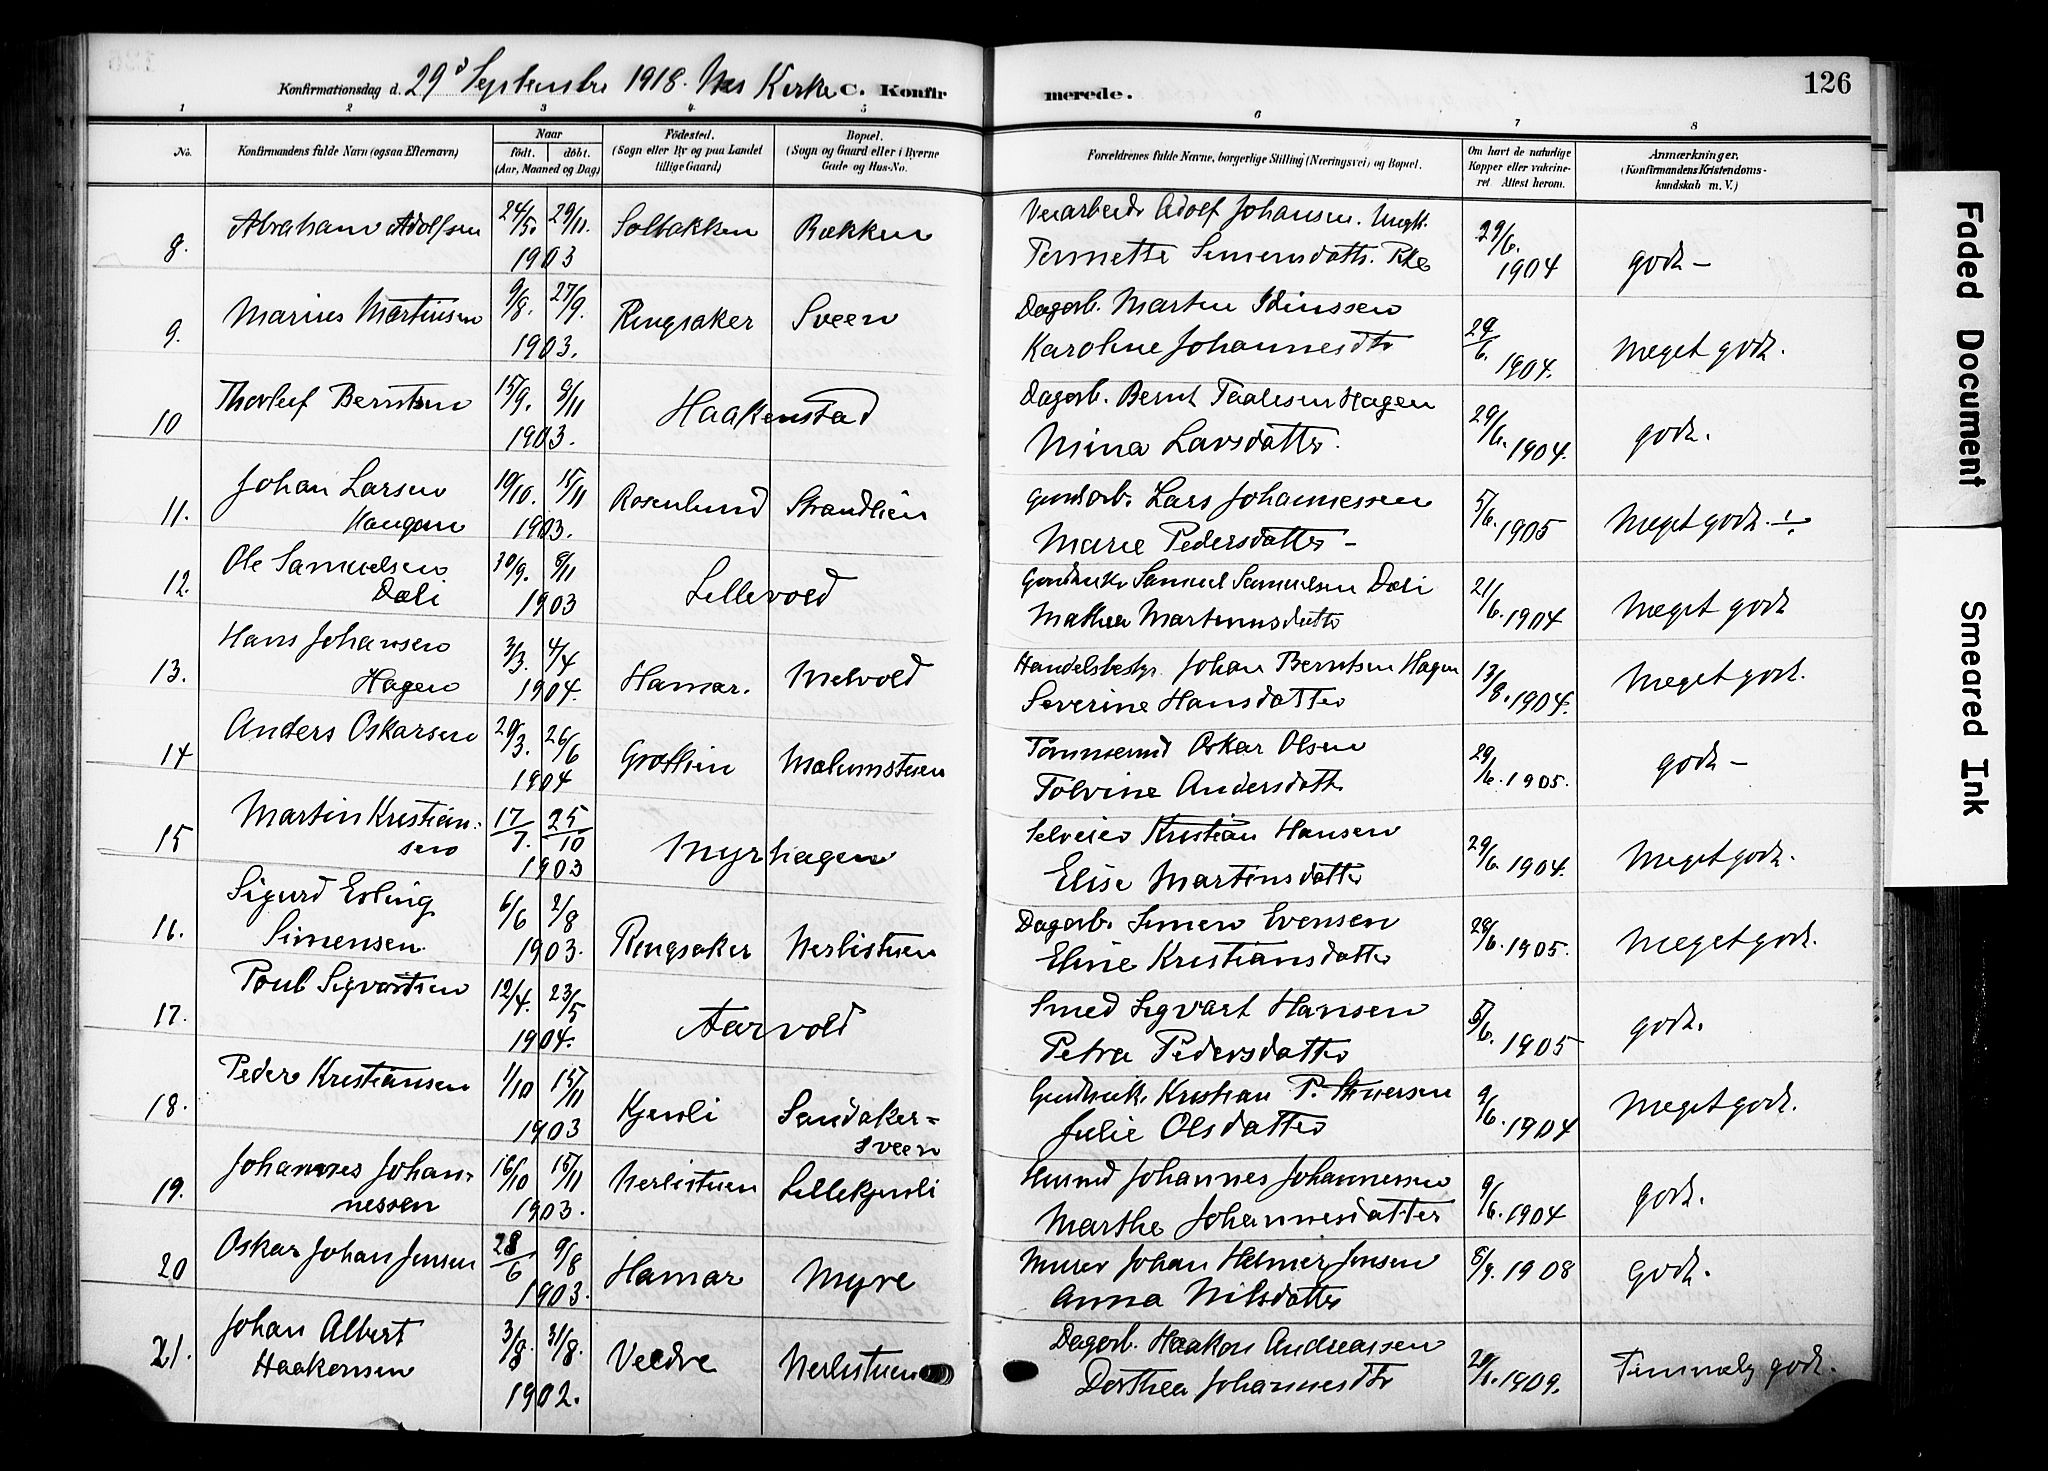 126
Konfirmationsdag d. 29d September 1918. Nes Kirke C. Konfirmerede.
1 2 3 4 5 6 7 8
No. Konfirmandens fulde Navn (ogsaa Efternavn) Naar født. døbt. (Aar, Maaned og Dag) Fødested. (Sogn eller By og paa Landet tillige Gaard) Bopæl. (Sogn og Gaard eller i Byerne Gade og Hus-No. Forældrenes fulde Navne, borgerlige Stilling (Næringsvei) og Bopæl. Om havt de naturlige Kopper eller vakcineret Attest herom. Anmærkninger. (Konfirmandens Kristendomskundskab m. V.)
8. Abraham Adolfsen 24/5. 29/11. 1903 Solbakken Bækken Adolf Johansen. Ungk. 29/6. 1904 godt –
9. Marius Martinsen 9/8. 27/9. 1903. Ringsaker Sveen Dagarb. Martin
Karoline Johannesdtr 29/6. 1904. Meget godt.
10 Thorleif Berntsen 15/9. 8/11 1903. Haakenstad Dagarb. Bernt Hagen
Mina Larsdatter. 29/6. 1904. godt.
11. Johan Larsen
Haugen 19/10. 15/11 1903. Rosenlund Strandlien Lars Johannessen
Marie Pedersdatter – 5/6. 1905 Meget godt.
12. Ole Samuelsen
Dæli 30/9. 8/11 1903 Lillevold Samuel Samuelsen Dæli
Mathea 21/6. 1904 Meget godt
13. Hans Johansen
Hagen 3/3. 4/4 1904. Hamar. Melvold Handelsbestyr. Johan Berntsen Hagen
Severine Hansdatter 13/8. 1904. Meget godt.
14 Anders Oskarsen 29/3. 26/6 1904 Oskar Olsen
Tolvine Andersdatter 29/6. 1905. godt –
15 Martin Kristian-
sen 17/7. 25/10 1903 Myrhagen Selveier Kristian Hansen
Elise Martinsdatter 29/6. 1904. Meget godt.
16. Sigurd Erling
Simensen 6/6 2/8 1903. Ringsaker Nerlistuen Dagarb. Simen Evensen
Eline Kristiansdatter 29/6. 1905. Meget godt.
17. Poul Sigvartsen 12/4. 23/5 1904. Aarvold Smed Sigvart Hansen
Petra Pedersdatter 5/6. 1905 godt.
18. Peder Kristiansen 1/10 15/11 1903 Kjenli Sandaker=
sveen Kristian P.
Julie Olsdatter 9/6. 1904 Meget godt.
19. Johannes Johan-
nessen 16/10 15/11 1903. Nerlistuen Lillekjenli Husmd Johannes Johannessen
Marthe Johannesdatter 9/6. 1904 godt.
20 Oskar Johan Jensen 28/6 9/8 1903. Hamar Myre Murer Johan Helmer Jensen
Anna Nilsdatter 8/9. 1908 Godt.
21. Johan Albert
Haakensen 3/8. 31/8. 1902. Veldre Nerlistuen Dagarb. Haakon Andreassen
Dorthea Johannesdtr 1909. Temmelig godt.
Faded Document
Smeared Ink